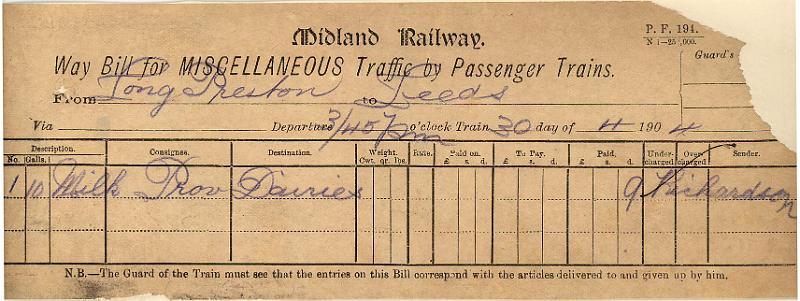 Midland Railway.
P. F. 194.
N 1—25,000.
Guard's
Way Bill for MISCELLANEOUS Traffic by Passenger Trains.
From Long Preston to Leeds
Via Departure 3/45 pm o'clock Train 30 day of 4 1904
Description. Consignee. Destination. Weight. Rate. Paid on. To Pay. Paid. Under-charged Over charged Sender.
No. Galls. Cwt. qr. lbs. £ s. d. £ s. d. £ s. d.
1 10 Milk Prov Dairies Richardson
N.B.—The Guard of the Train must see that the entries on this Bill correspond with the articles delivered to and given up by him.